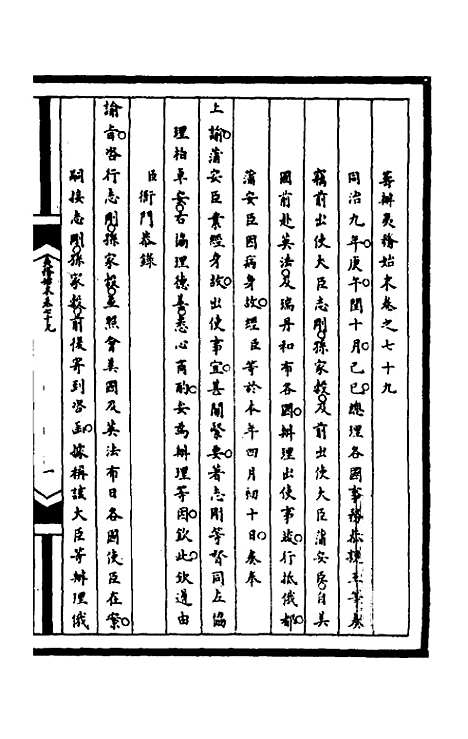 籌辦夷務始末卷之七十九
同治九年庚午閏十月己巳總理各國事務恭親王等奏
竊前出使大臣志剛孫家穀及前出使大臣蒲安臣自美
國前赴英法及瑞丹和布各國辦理出使事竣行抵俄都
蒲安臣因病身故經臣等於本年四月初十日奏奉
上諭蒲安臣業經身故出使事宜甚關緊要著志剛等督同左協
理柏卓安右協理德善悉心商酌妥為辦理等因欽此欽遵由
臣衙門恭錄
諭旨咨行志剛孫家穀並照會美國及英法布日各國使臣在案
嗣接志剛孫家穀前後寄到咨函據稱該大臣等辦理俄
夷務始末卷七十九
一